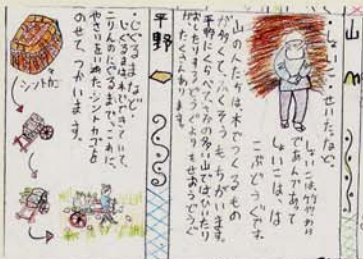 山
・しょいこ・せいたなど・
しょいこは、竹やわら
であんであって
しょいこは、は
こぶどうぐです。
山の人たちは、木でつくるもの
が多くて、ふくそうもちがいます。
平野にくらべてさかの多い山では、ひいたり
するどうぐよりもせおうどうぐ
がたくさんあります。
平野
・じぐるまなど・
じぐるまは、木でできていて、
二りんのにぐるまで、これに、
やさいをいれた、シントカゴを
のせて、つかいます。
シントカゴ